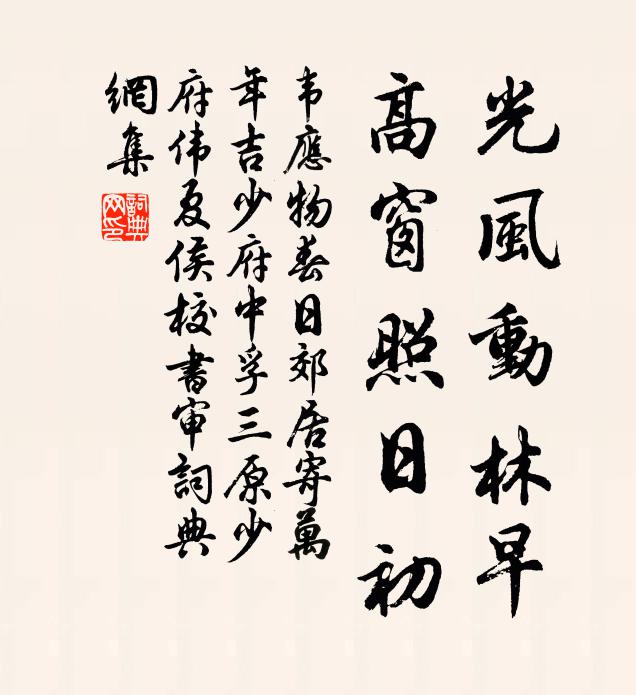 光風動林早
高窗照日初
韦應物春日郊居寄萬
年吉少府中孚三原少
府伟夏侯校書审詞典
網集
詞典
网印